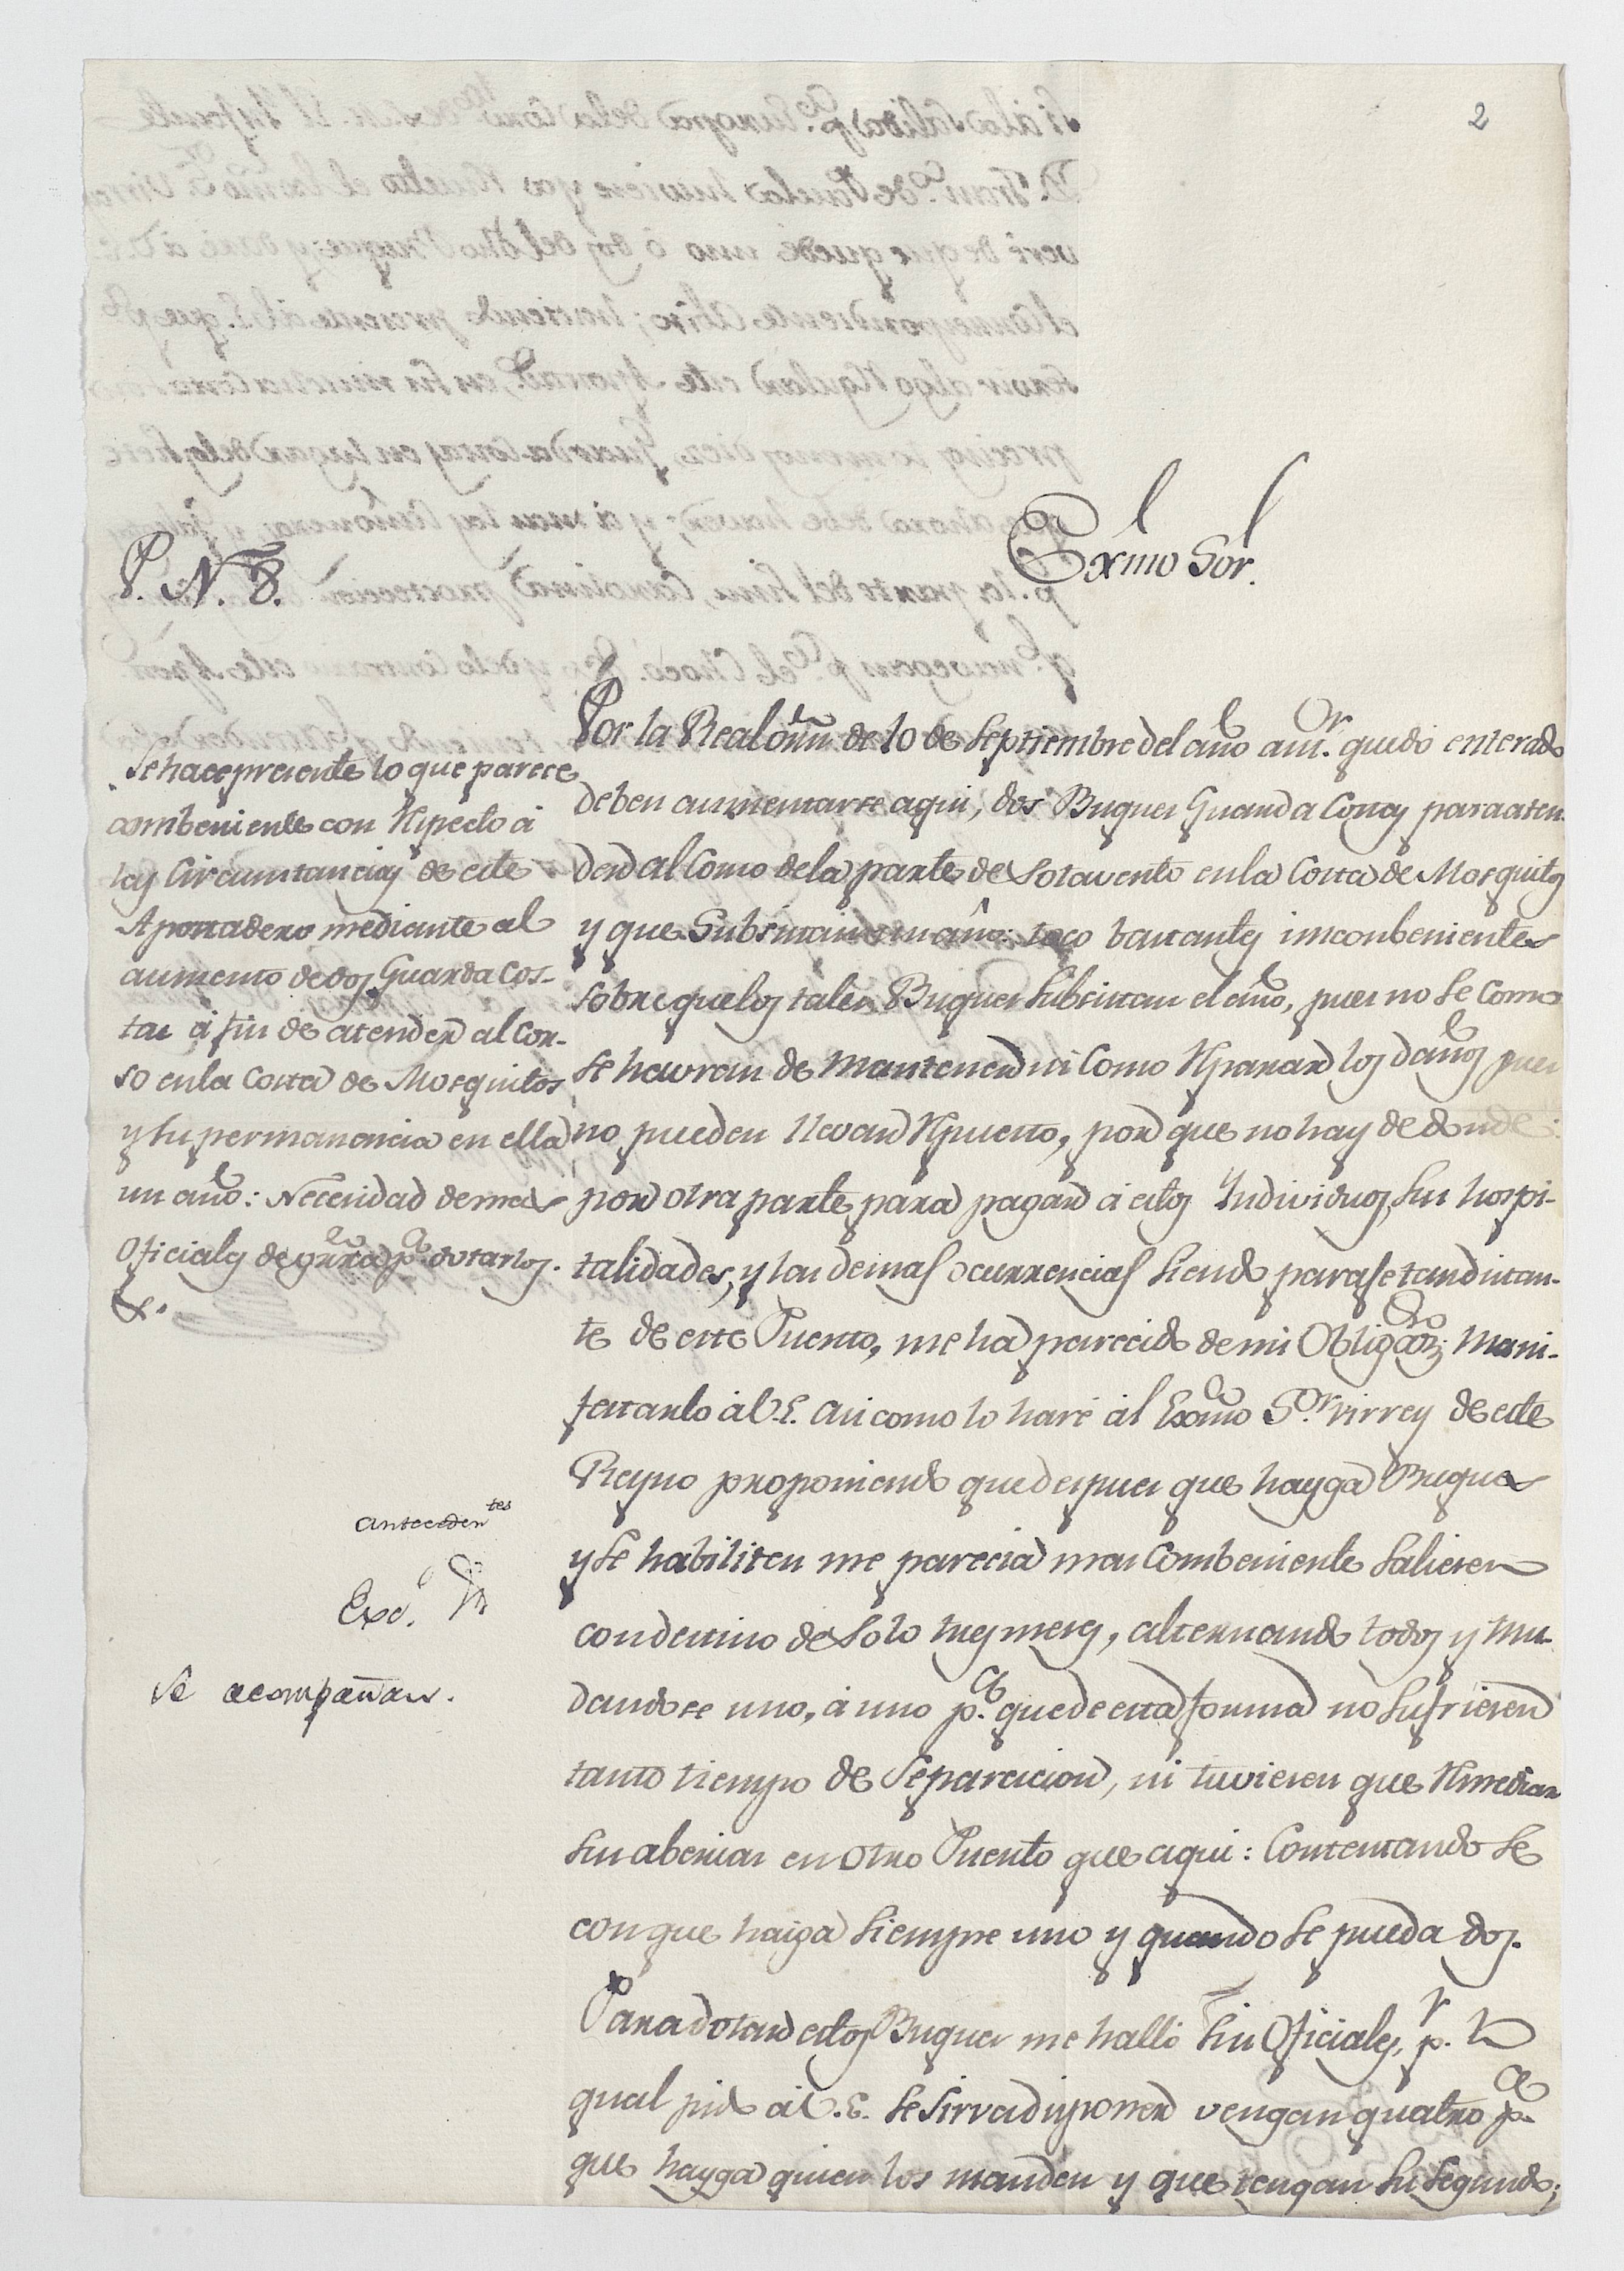 2
Exmo Sor.
P. N. 8.
Se hace presente lo que parece
combeniente con Rspecto á
las Circunstancias de este
Apostadero mediante al
aumento de dos Guarda Cos-
tas á fin de atender al Cor-
so en la Costa de Mosquitos
y su permanencia en ella
un año: Necesidad de mas
Oficiales de grra pa. dotarlos.
&.
antecedentes
Expe.
Se acompañan.
Por la Real orn de 10 de Septiembre del año antor. quedo enterado
deben aumentarse aqui, dos Buques Guarda Costas para aten-
der al Corso de la parte de Sotavento en la Costa de Mosquitos
y que Subsistan un año: toco bastantes inconbenientes
sobre que los tales Buques subsistan el año, pues no se como
se havran de mantener ni como Rparar los daños pues
no pueden llevar Rpuesto, por que no hay de donde:
por otra parte para pagar á estos Yndividuos, sus hospi-
talidades, y las demas ocurrencias siendo parase tan distan-
te de este Puerto, me ha parecido de mi Obligacon; mani-
festarlo á V.E. asi como lo haré al Exmo Sor. Virrey de este
Reyno proponiendo que despues que hayga Buques
y se habiliten me parecia mas Combeniente salieren
con destino de solo tres meses, alternando todos y mu-
dandose uno, á uno pa. que de esta forma no sufrieren
tanto tiempo de Separacion, ni tuvieren que Rmediar
sus aberias en otro Puerto que aqui: Contentandose
con que haiga siempre uno y quando se pueda dos.
Para dotar estos Buques me hallo sin Oficiales, pr. lo
qual pido á V.E. se sirva disponer vengan quatro pa.
que hayga quien los manden y que tengan su segundo;